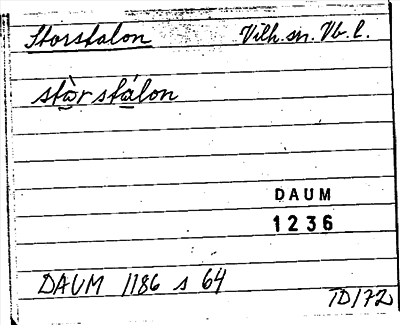 Storstalon Vilh. sn. Vb. l.
stòrstálon
DAUM
1236
DAUM 1186 s 64
TD/72